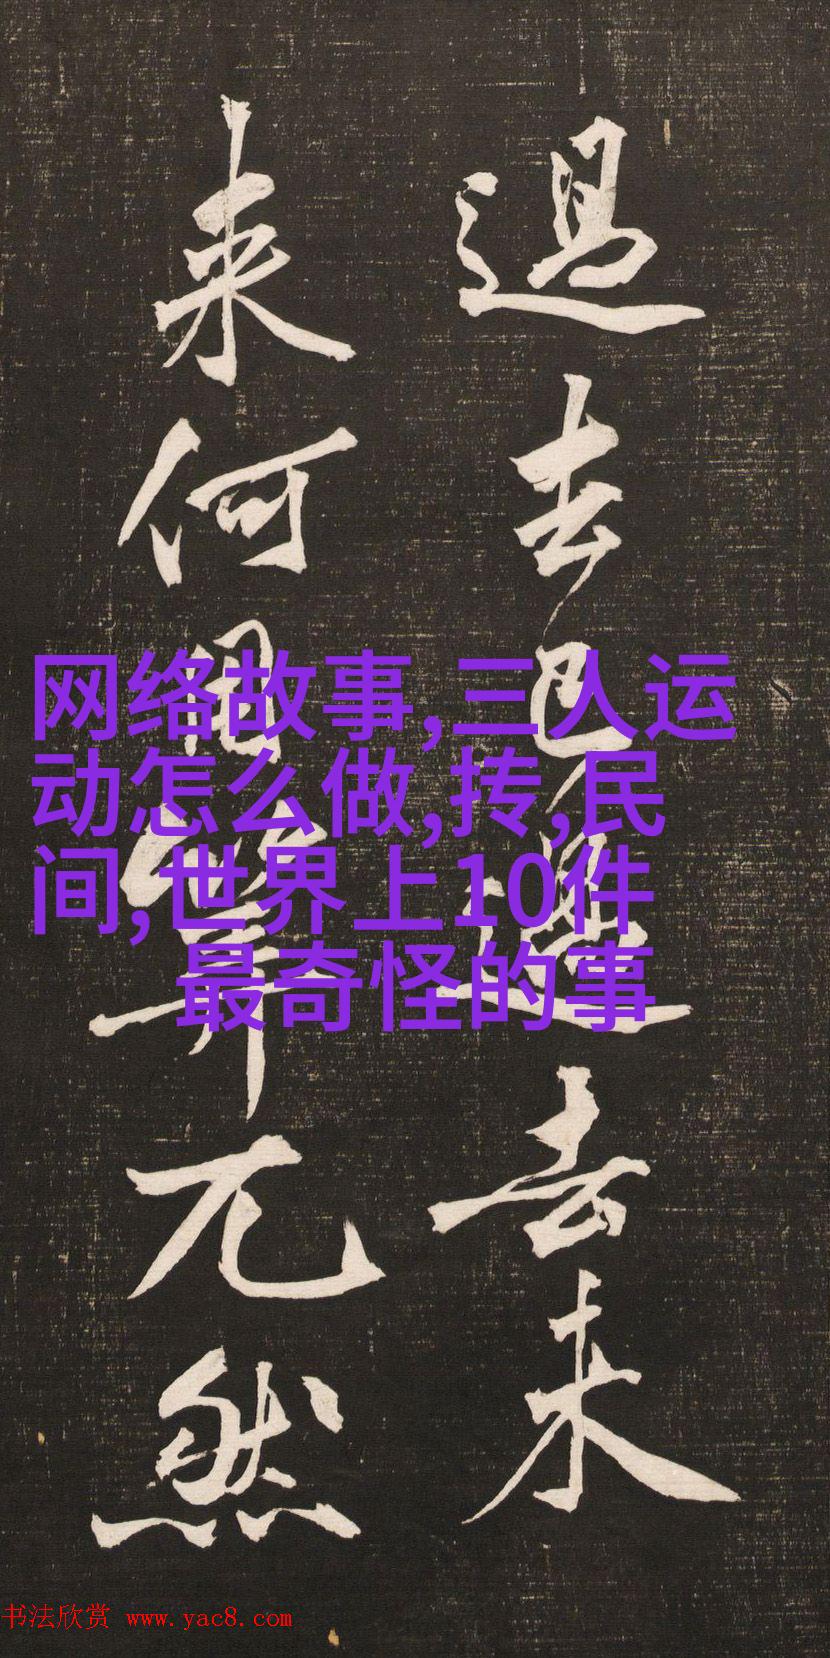 過去已過去未
来何用筭兀然
网络故事,三人运
动怎么做,抟,民
间,世界上10件
最奇怪的事
书法欣赏 www.yac8.com